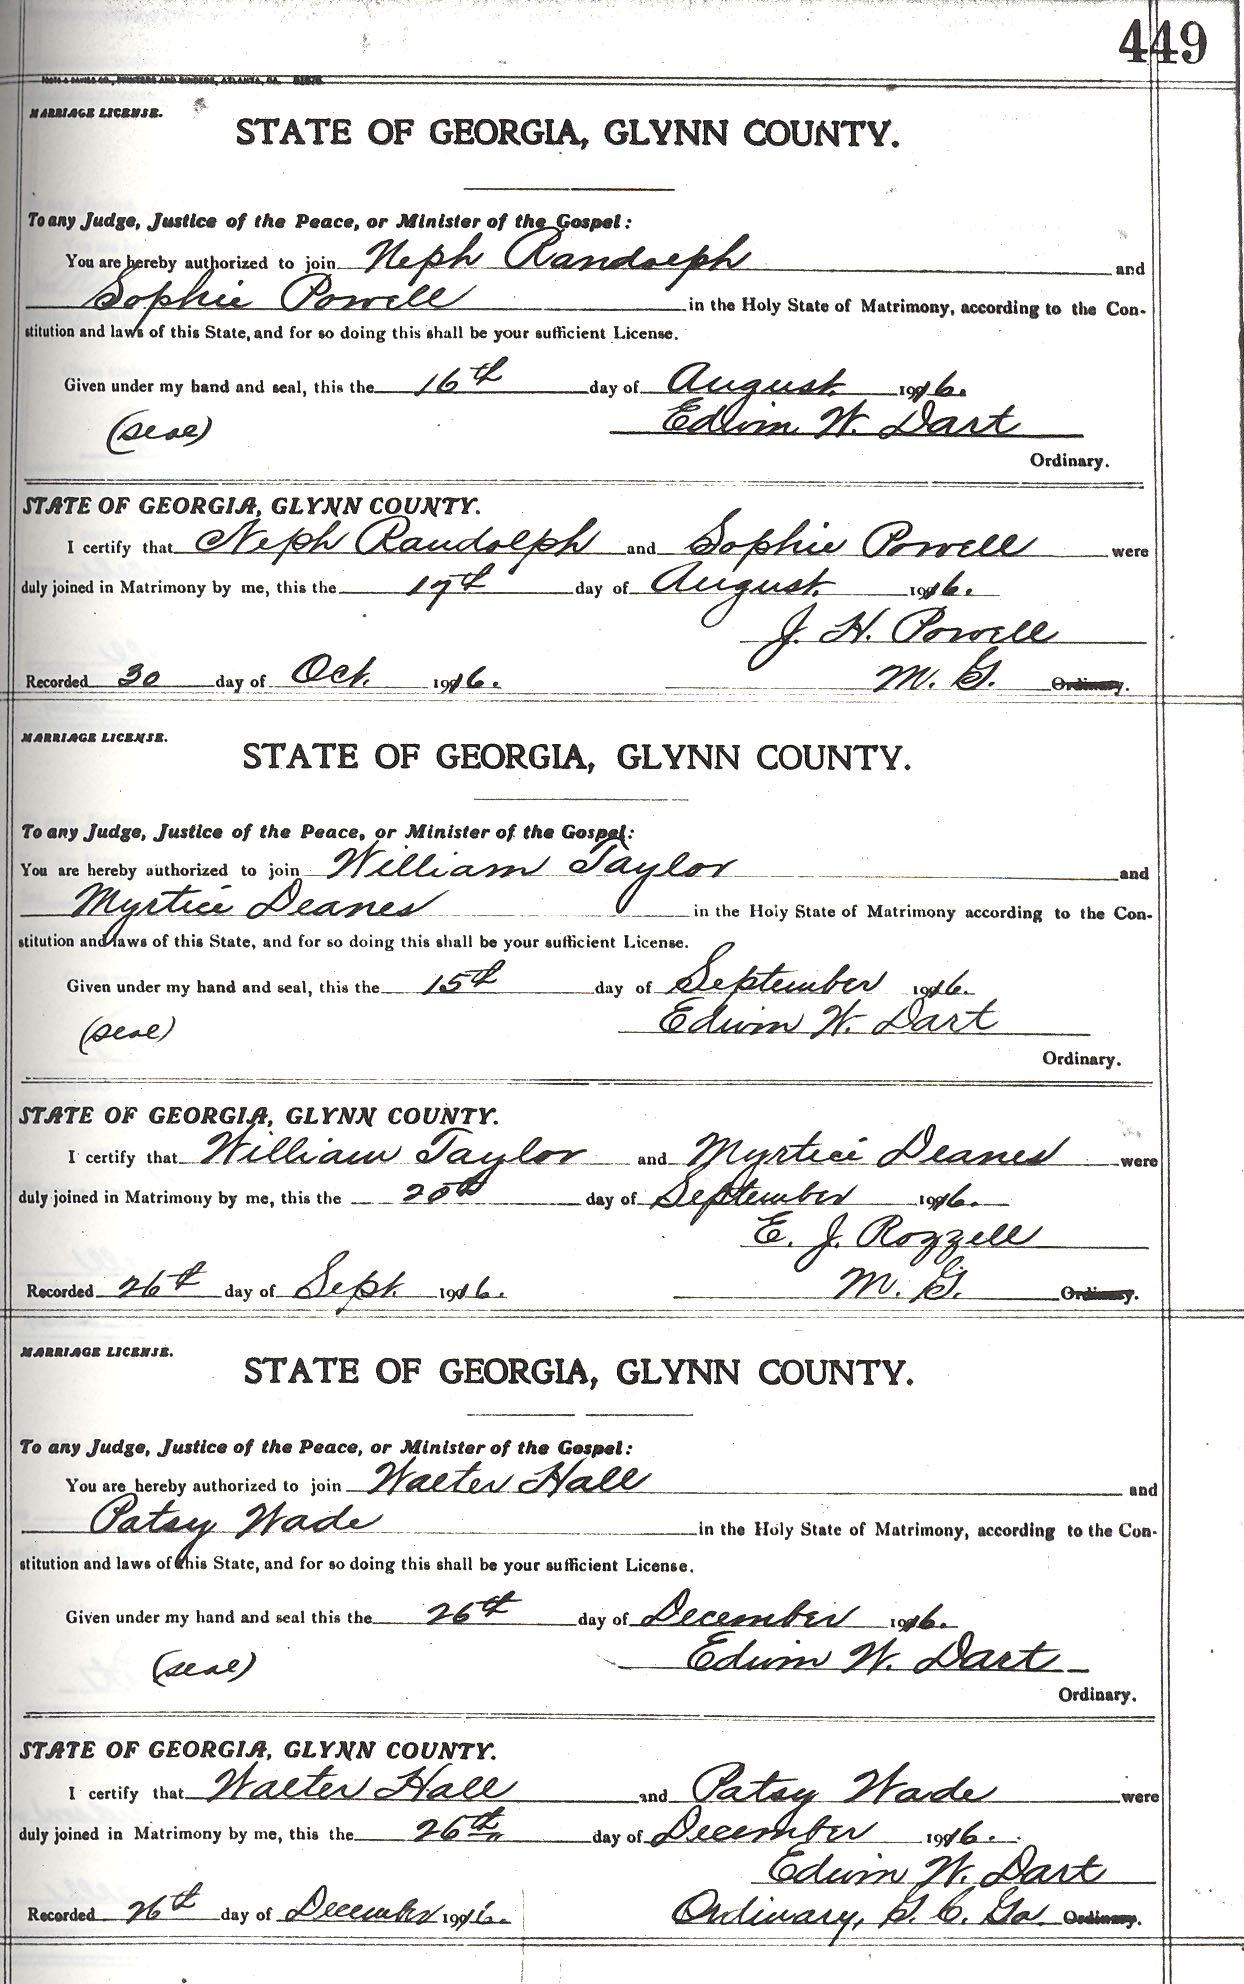 449
FOOTE & DAVIES CO., PRINTERS AND BINDERS, ATLANTA, GA.
MARRIAGE LICENSE.
STATE OF GEORGIA, GLYNN COUNTY.
To any Judge, Justice of the Peace, or Minister of the Gospel:
You are hereby authorized to join Neph Randolph and
Sophie Powell in the Holy State of Matrimony, according to the Con-
stitution and laws of this State, and for so doing this shall be your sufficient License.
Given under my hand and seal, this the 16th day of August 1916.
(seal) Edwin W. Dart
Ordinary.
STATE OF GEORGIA, GLYNN COUNTY.
I certify that Neph Randolph and Sophie Powell were
duly joined in Matrimony by me, this the 17th day of August 1916.
J. H. Powell
Recorded 30 day of Oct. 1916. M. G. Ordinary.
MARRIAGE LICENSE.
STATE OF GEORGIA, GLYNN COUNTY.
To any Judge, Justice of the Peace, or Minister of the Gospel:
You are hereby authorized to join William Taylor and
Myrtice Deanes in the Holy State of Matrimony according to the Con-
stitution and laws of this State, and for so doing this shall be your sufficient License.
Given under my hand and seal, this the 15th day of September 1916.
(seal) Edwin W. Dart
Ordinary.
STATE OF GEORGIA, GLYNN COUNTY.
I certify that William Taylor and Myrtice Deanes were
duly joined in Matrimony by me, this the 20th day of September 1916.
E. J. Rozzell
Recorded 26th day of Sept. 1916. M. G. Ordinary.
MARRIAGE LICENSE.
STATE OF GEORGIA, GLYNN COUNTY.
To any Judge, Justice of the Peace, or Minister of the Gospel:
You are hereby authorized to join Walter Hall and
Patsy Wade in the Holy State of Matrimony, according to the Con-
stitution and laws of this State, and for so doing this shall be your sufficient License.
Given under my hand and seal this the 26th day of December 1916.
(seal) Edwin W. Dart
Ordinary.
STATE OF GEORGIA, GLYNN COUNTY.
I certify that Walter Hall and Patsy Wade were
duly joined in Matrimony by me, this the 26th day of December 1916.
Edwin W. Dart
Recorded 26th day of December 1916. Ordinary, G. C. Ga. Ordinary.